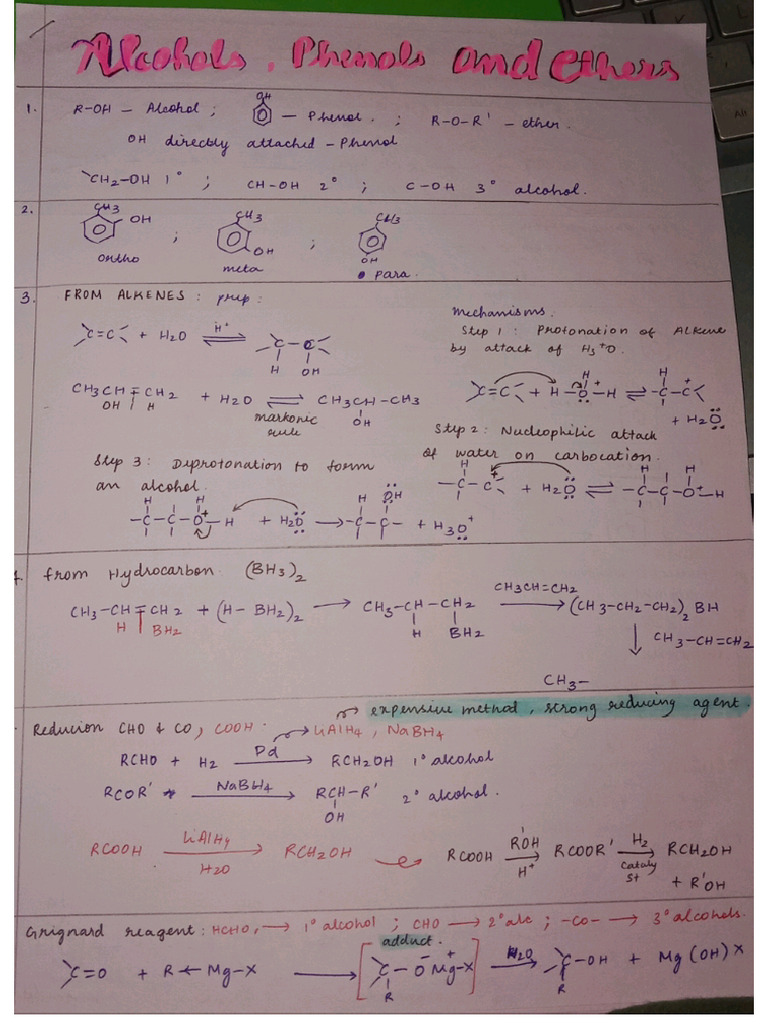 Alcohols, Phenols and ethers
1. R-OH – Alcohol ; OH – Phenol. ; R-O-R' – ether.
OH directly attached – Phenol
CH2-OH 1° ; CH-OH 2° ; C-OH 3° alcohol.
2. CH3 OH ortho ; CH3 OH meta ; CH3 OH para.
3. FROM ALKENES : prep :
C=C + H2O ⇌ H+ -C-C- H OH
CH3CH=CH2 + H2O ⇌ CH3CH-CH3
OH H markonic rule OH
Mechanisms.
Step 1 : Protonation of Alkene
by attack of H3+O.
C=C + H-O-H ⇌ -C-C + H2O
H + H +
Step 2 : Nucleophilic attack
of water on carbocation.
-C-C + H2O ⇌ -C-C-O-H
H + H H +
Step 3 : Deprotonation to form
an alcohol.
-C-C-O-H + H2O → -C-C- + H3O+
H H + H OH
from Hydrocarbon. (BH3)2
CH3-CH=CH2 + (H-BH2)2 → CH3-CH-CH2 CH3CH=CH2 → (CH3-CH2-CH2)2 BH
H BH2 H BH2 ↓ CH3-CH=CH2
CH3-
expensive method, strong reducing agent.
Reducion CHO & CO, COOH. LiAlH4, NaBH4
RCHO + H2 Pd → RCH2OH 1° alcohol
RCOR' NaBH4 → RCH-R' 2° alcohol.
OH
RCOOH LiAlH4 H2O → RCH2OH
RCOOH R'OH H+ → RCOOR' H2 Catalyst → RCH2OH
+ R'OH
Grignard reagent : HCHO, → 1° alcohol ; CHO → 2° alc ; -CO- → 3° alcohols.
adduct.
C=O + R ← Mg-X → [C-O- Mg+-X] H2O → C-OH + Mg(OH)X
R R